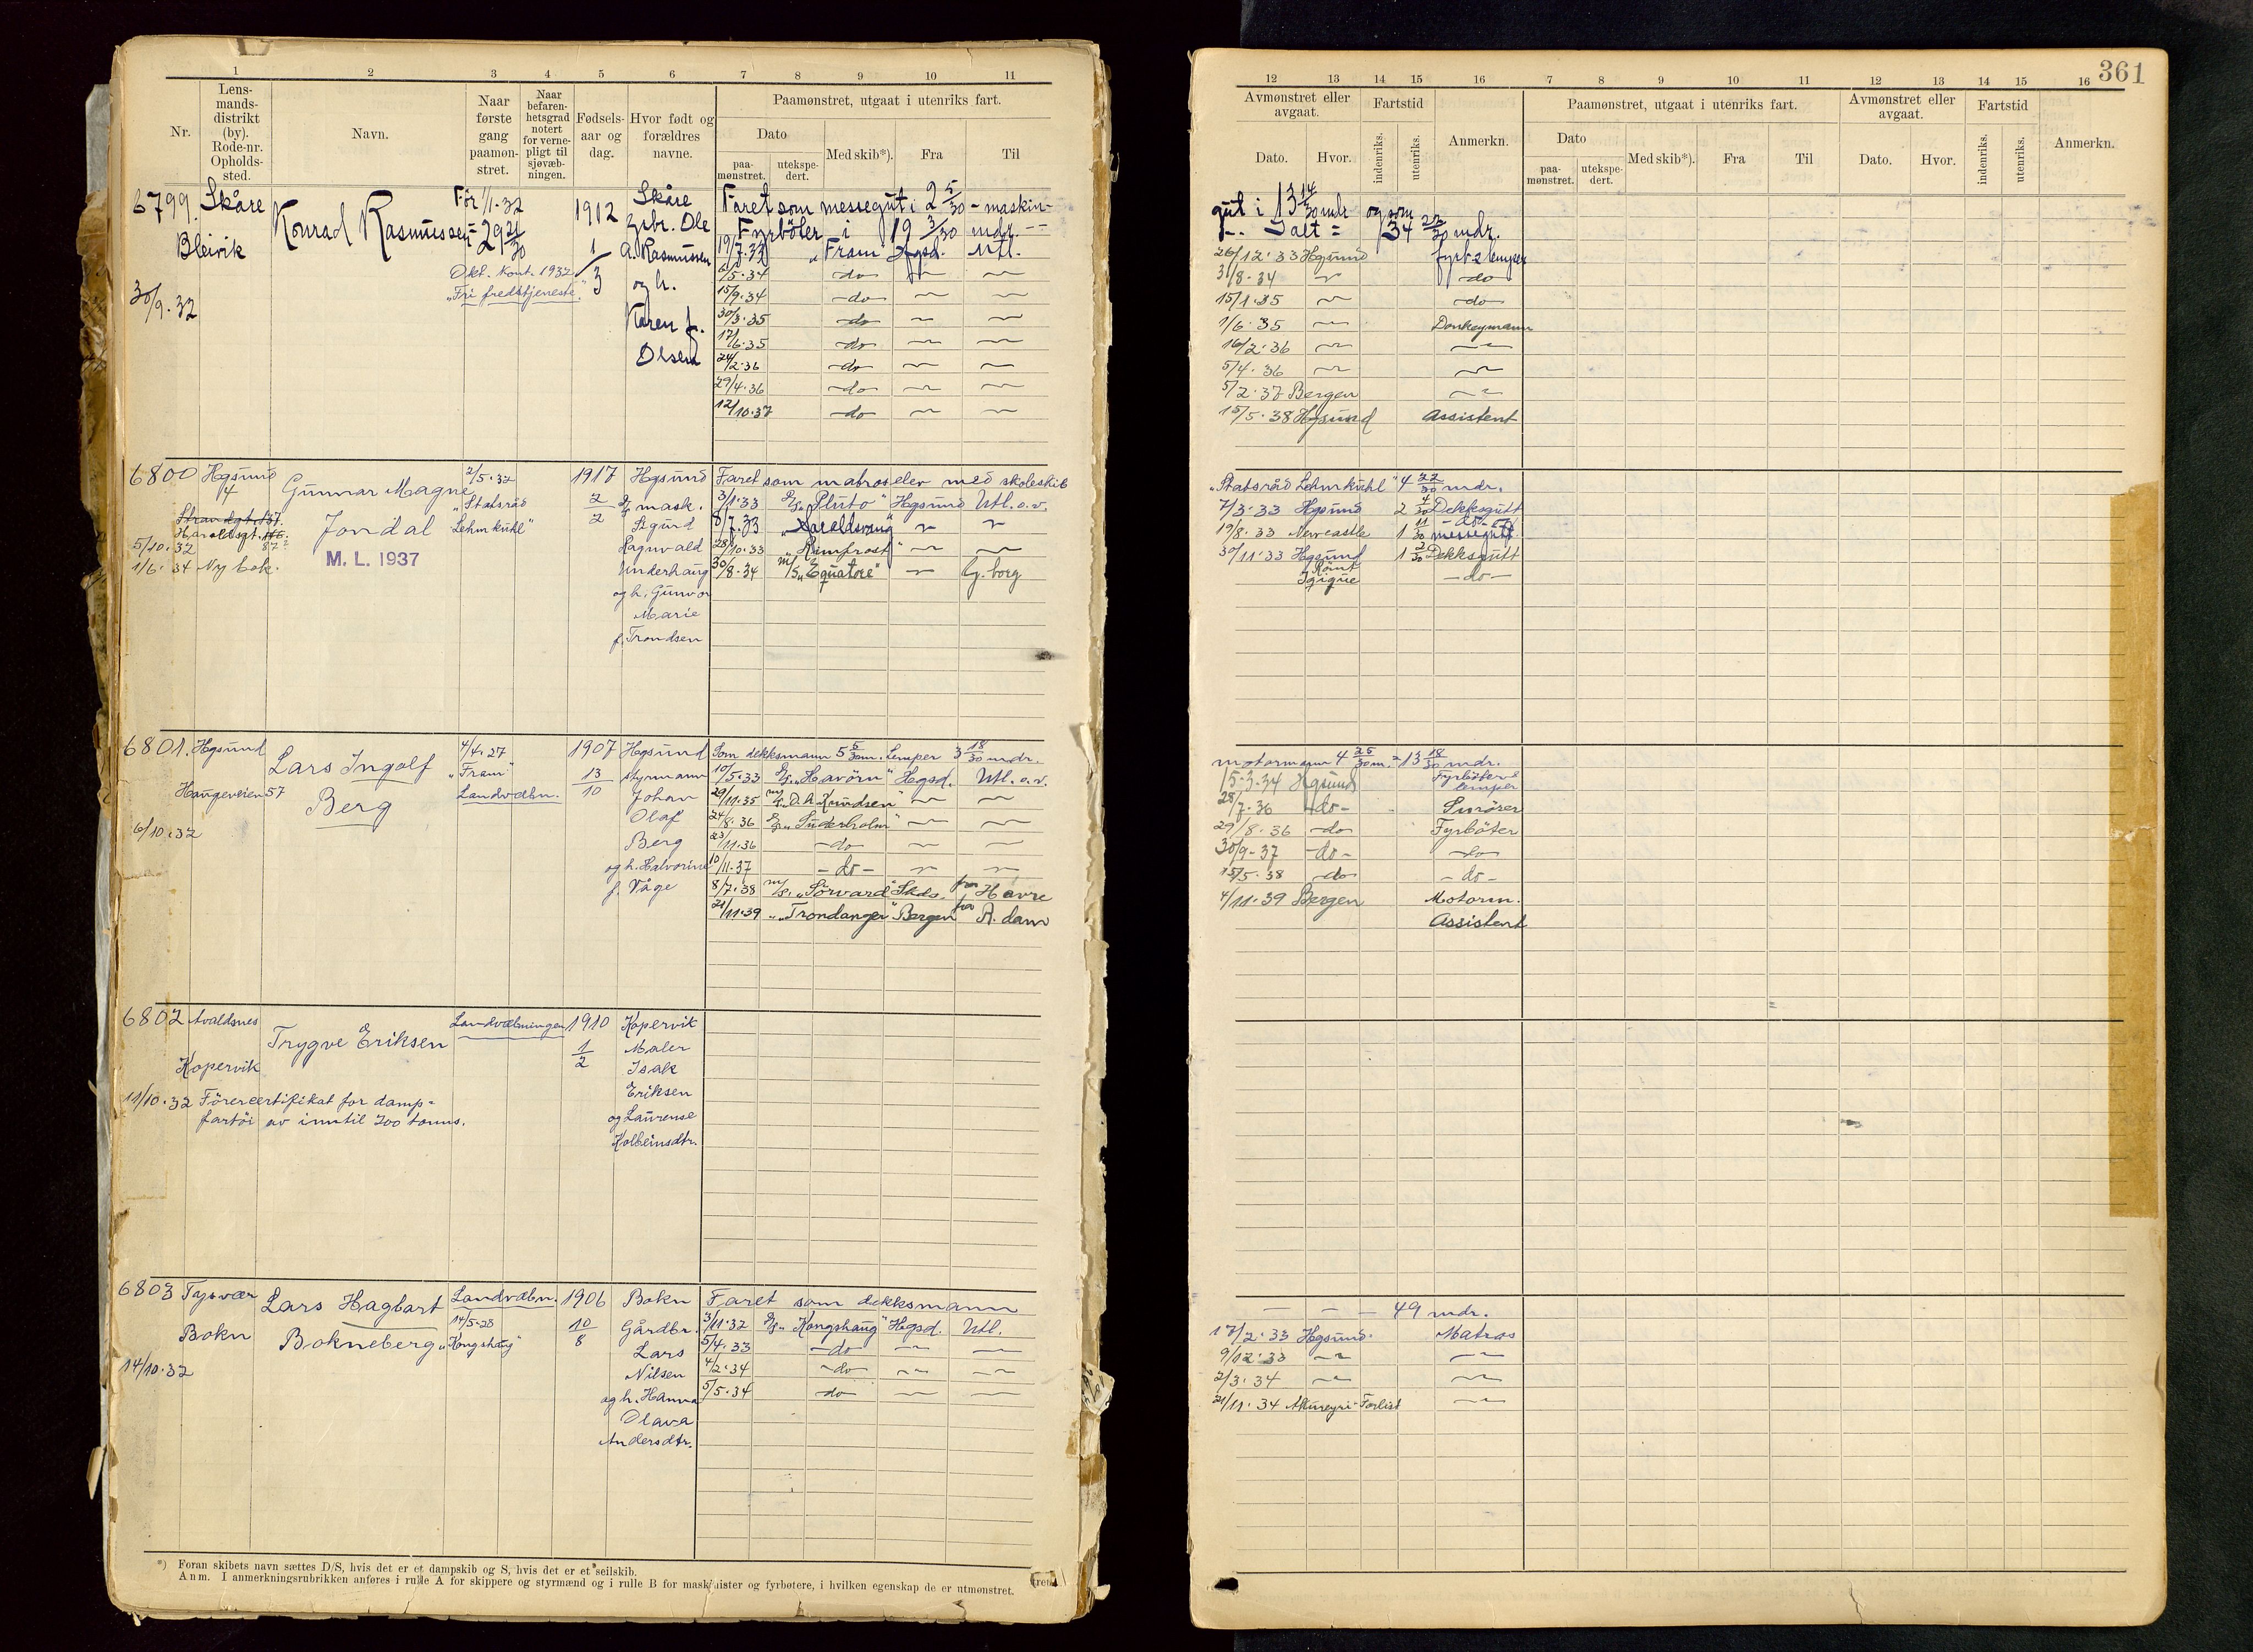 1 2 3 4 5 6 7 8 9 10 11
Nr.
Lens-
mands-
distrikt
(by).
Rode-nr.
Opholds-
sted.
Navn.
Naar
første
gang
paamøn-
stret.
Naar
befaren-
hetsgrad
notert
for verne-
pligt til
sjøvæb-
ningen.
Fødsels-
aar og
dag.
Hvor født og
forældres
navne.
Paamønstret, utgaat i utenriks fart.
Dato
paa-
mønstret.
utekspe-
dert.
Med skib*).
Fra
Til
6799. Skåre
Bleivik
30/9.32
Konrad Rasmussen
Før 1/1-32
= 29 21/30
Okt. Kont. 1932
"Fri fredstjeneste."
1912
1/3
Skåre
Grbr. Ole
A. Rasmussen
og h.
Karen f.
Olsen
Faret som messegut i 2 5/30 - maskin-
Fyrbøter i 19 3/30 mdr.
19/7.33 "Fram" Hgsd. Utl.
6/5.34 do
15/9.34 do
30/3.35 do
17/6.35 do
24/2.36 do
29/4.36 do
12/10.37 do
6800 Hgsund
4
Strandgt. 137.
Haraldsgt.
5/10.32
1/6.34 Ny bok.
Gunnar Magne
Jondal
M. L. 1937
2/5.32
"Statsråd
Lehmkuhl"
1917
2/2
Hgsund
mask.
Sigurd
Ragnvald
Underhaug
og h. Gunvor
Marie
f. Trondsen
Faret som matroselev med skoleskib
3/1.33 D/S "Pluto" Hgsund Utl. o.v.
8/7.33 "Haraldsvang"
28/10.33 "Rimfrost"
30/8.34 m/S "Equatore" G.borg
6801. Hgsund
Haugeveien 57
6/10.32
Lars Ingolf
Berg
4/4.27
"Fram"
Landvæbn.
1907
13/10
Hgsund
styrmann
Johan
Olaf
Berg
og h. Halvorine
f. Våge
Som dekksmann 5 5/30 m. Lemper 3 18/30 mdr.
10/5.33 D/S "Havörn" Hgsd. Utl. o.v.
29/11.35 m/S "O. A. Knudsen"
24/8.36 D/S "Süderholm"
23/11.36 do
10/11.37 - do -
8/7.38 m/S. "Sørvard" Skds. fra Havre
21/11.39 " "Trondanger" Bergen fra R.dam
6802 Avaldsnes
Kopervik
11/10.32 Förercertifikat for damp-
fartöi av inntil 200 tonns.
Trygve Eriksen
Landvæbningen
1910
1/2
Kopervik
Maler
Isak
Eriksen
og Laurense
Kolbeinsdtr.
6803 Tysvær
Bokn
14/10.32
Lars Hagbart
Bokneberg
Landvæbn.
14/5-28
"Kongshaug"
1906
10/8
Bokn
Gårdbr.
Lars
Nilsen
og h. Hanna
Olava
Andersdtr.
Faret som dekksmann
3/11.32 D/S "Kongshaug" Hgsd. Utl.
5/4.33 - do -
4/2.34 - do -
5/5.34 do
*) Foran skibets navn sættes D/S, hvis det er et dampskib og S, hvis det er et seilskib.
Anm. I anmerkningsrubrikken anføres i rulle A for skippere og styrmænd og i rulle B for maskinister og fyrbøtere, i hvilken egenskap de er utmønstret.
361
12 13 14 15 16 7 8 9 10 11 12 13 14 15 16
Avmønstret eller
avgaat.
Dato. Hvor.
Fartstid
indenriks.
utenriks.
Anmerkn.
Paamønstret, utgaat i utenriks fart.
Dato
paa-
mønstret.
utekspe-
dert.
Med skib*).
Fra
Til
Avmønstret eller
avgaat.
Dato. Hvor.
Fartstid
indenriks.
utenriks.
Anmerkn.
gut i 13 14/30 mdr og som
Ialt = 34 22/30 mdr.
26/12.33 Hgsund fyrb & lemper
31/8.34 do
15/1.35 do
1/6.35 Donkeymann
16/2.36
5/4.36
5/2.37 Bergen
15/5.38 Hgsund Assistent
"Statsråd Lehmkuhl" 4 22/30 mdr.
7/3.33 Hgsund 2 4/30 Dekksgutt
19/8.33 Newcastle 1 11/30 messegutt
30/11.33 Hgsund 1 2/30 Dekksgutt
Rømt
Iqique - do -
motormann 4 25/30 m. = 13 18/30 mdr.
15.3.34 Hgsund Fyrböter &
lemper
28/7.36 - do - Smörer
29/8.36 - do Fyrböter
30/9-37 - do - do
15/5.38 do - do -
4/11.39 Bergen Motorm.
Assistent
49 mdr.
17/2.33 Hgsund. Matros
9/12.33
2/3.34
21/11.34 Akureyri - Forlist